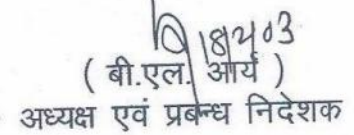 18/2/03
( बी.एल. आर्य )
अध्यक्ष एवं प्रबन्ध निदेशक